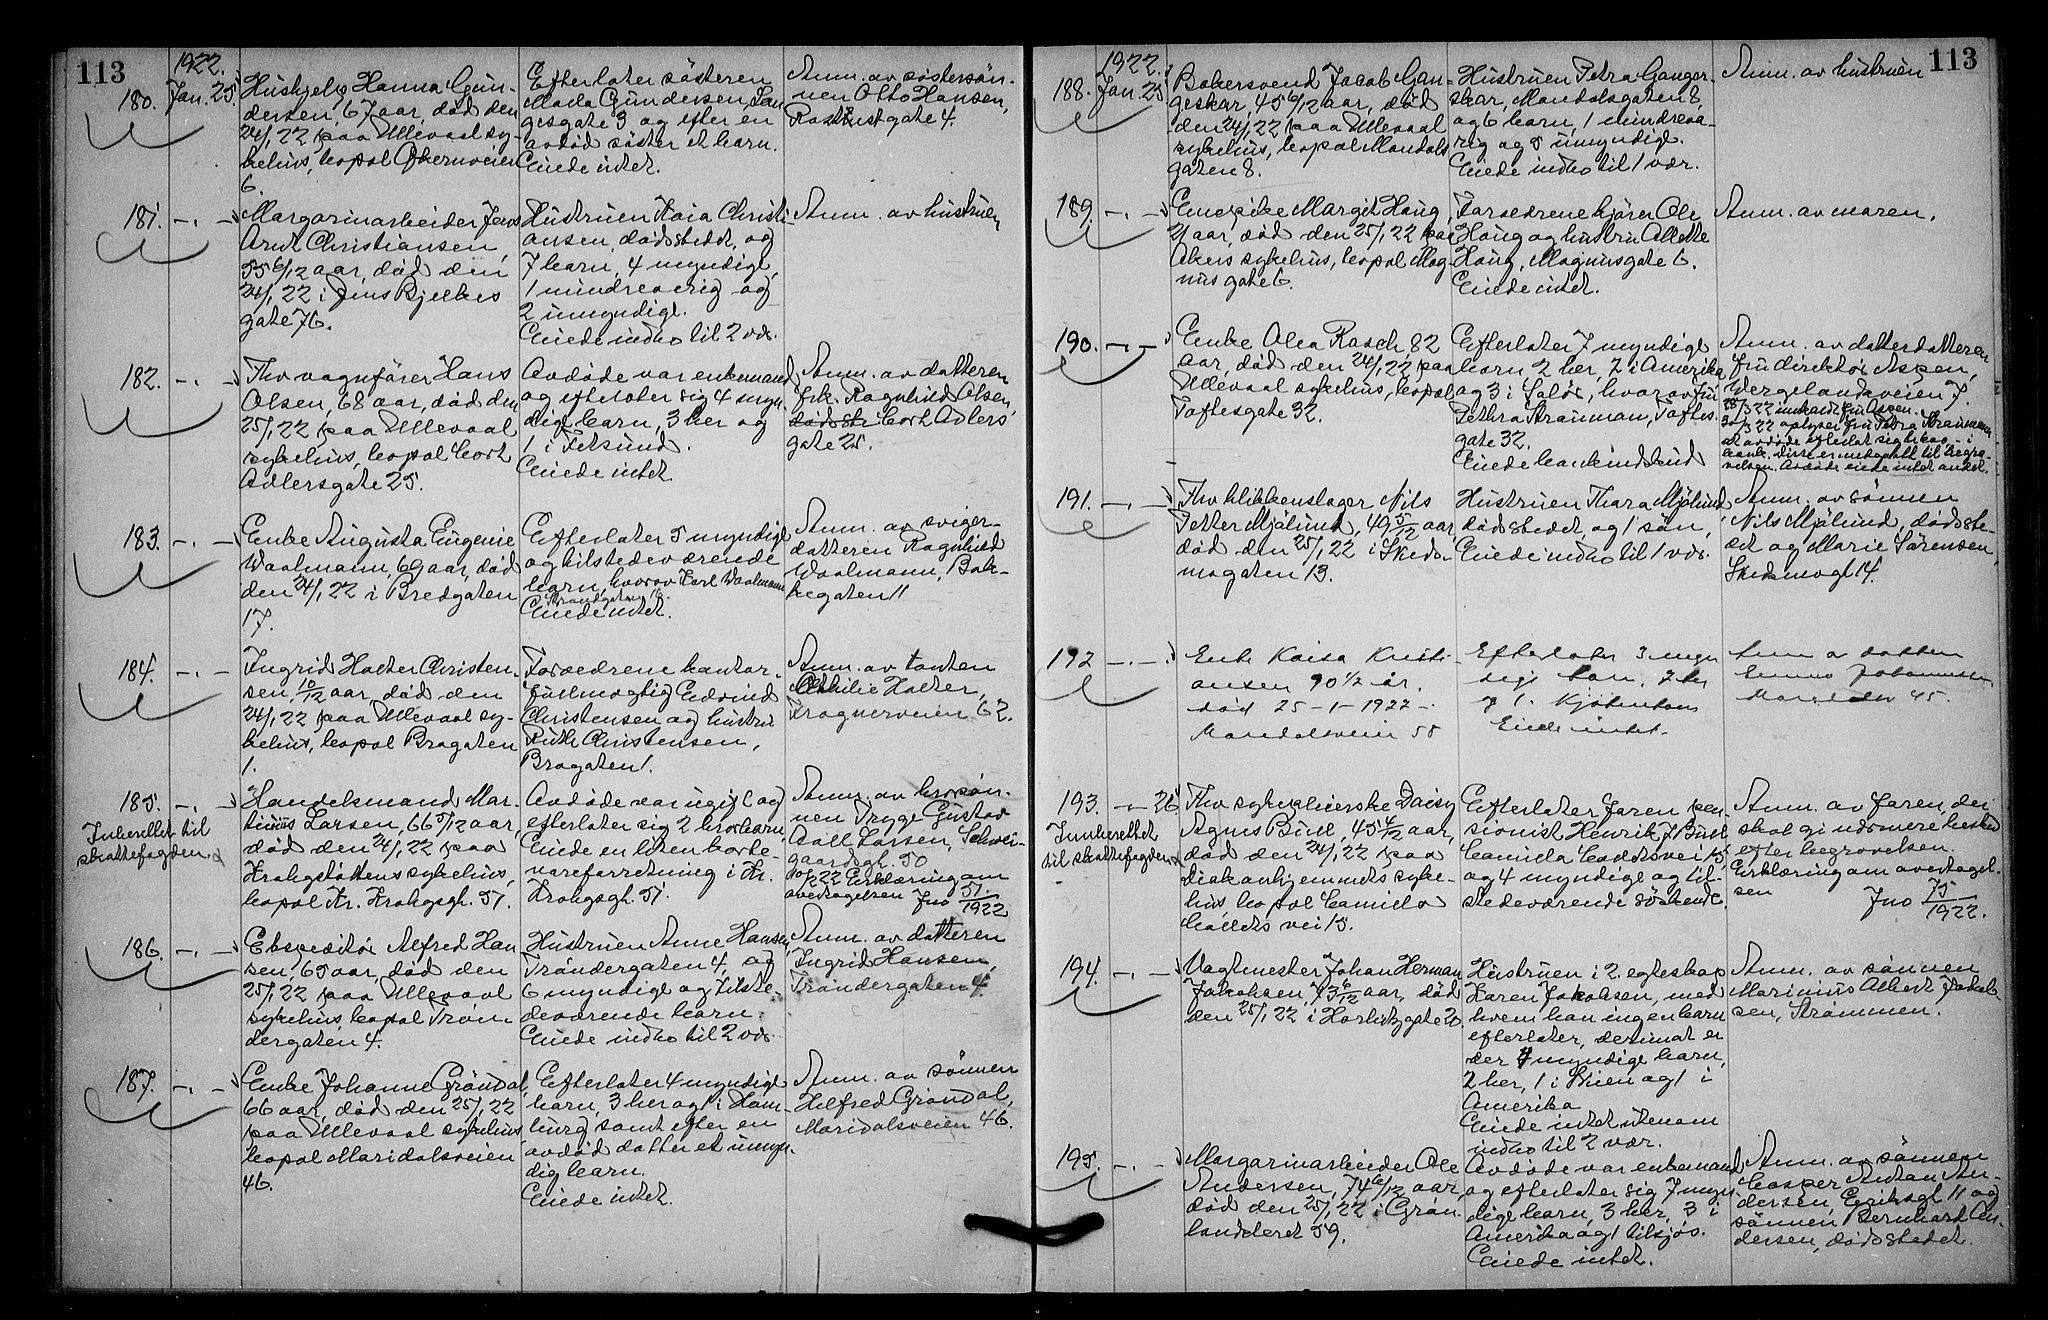 113
1922.
180. Jan. 25.
Hushjelp Hanna Gun-
dersen, 67 aar, død den
24/1 22 paa Ullevaal sy-
kehus, bopæl Økernveien
6.
Efterlater søsteren
Mada Gundersen, Lan
gesgate 3 og efter en
avdød søster et barn.
Eiede intet.
Anm. av søstersøn-
nen Otto Hansen,
gate 4.
181. -.-
Margarinarbeider Jens
Arnt Christiansen,
55 6/12 aar, død den
24/1 22 i Jens Bjelkes
gate 76.
Hustruen Kaia Christi
ansen, dødsstedet, og
7 barn, 4 myndige
1 mindreaarig og
2 umyndige.
Eiede indbo til 2 vær.
Anm. av hustruen
182. -.-
Fhv vognfører Hans
Olsen, 68 aar, død den
25/1 22 paa Ullevaal
sykehus, bopæl Cort
Adlersgate 25.
Avdøde var enkemand
og efterlater sig 4 myn
dige barn, 3 her og
1 i Fetsund.
Eiede intet.
Anm. av datteren
frk. Ragnhild Olsen,
dødsste Cort Adlers
gate 25.
183. -.-
Enke Augusta Eugenie
Waalmann, 69 aar, død
den 24/1 22 i Bredgaten
17.
Efterlater 5 myndige
og tilstedeværende
barn, hvorav Karl Waalmann
Strandgaten 16.
Eiede intet.
Anm. av sviger-
datteren Ragnhild
Waalmann, Bak-
kegaten 11
184. -.-
Ingrid Holter Christen-
sen, 0/12 aar, død den
24/1 22 paa Ullevaal sy-
kehus, bopæl Brogaten
1.
Foræedrene kontor-
fuldmægtig Edvind
Christensen og hustru
Ruth Christensen,
Brogaten 1.
Anm. av tanten
Holter,
Frognerveien 62.
185. -.-
Indberettet til
skattefogden.
Handelsmand Mar-
tinius Larsen, 66 5/12 aar,
død den 24/1 22 paa
Krohgstøttens sykehus,
bopæl Kr. Krohgsgt. 51.
Avdøde var ugift og
efterlater sig 2 brorbarn,
Eiede en liten korte-
vareforretning i Kr.
Krohgsgt. 51.
Anm. av brorsøn-
nen Trygve Gustav
Larsen, Schwei-
gaardsgt. 50
22 Erklæring om
overtagelsen Jno 51/1922
186. -.-
Ekspeditør Alfred Han
sen, 65 aar, død den
25/1 22 paa Ullevaal
sykehus, bopæl Trøn
dergaten 4.
Hustruen Anne Hansen,
Trøndergaten 4, og
6 myndige og tilste-
deværende barn.
Eiede indbo til 2 vær.
Anm. av datteren
Ingrid Hansen,
Trøndergaten 4.
187. -.-
Enke Johanne Grøndal,
66 aar, død den 25/1 22
paa Ullevaal sykehus
bopæl Maridalsveien
46.
Efterlater 4 myndige
barn, 3 her og 1 i Ham
burg samt efter en
avdød datter et umyn-
dig barn.
Eiede intet.
Anm. av sønnen
Hilfred Grøndal,
Maridalsveien 46.
113
1922.
188. Jan 25.
Bakersvend Jacob Gan-
geskar, 45 6/12 aar, død
den 24/1 22 paa Ullevaal
sykehus, bopæl Mandals
gaten 8.
Hustruen Petra Ganger-
skar, Mandalsgaten 8,
og 6 barn, 1 mindreaa-
rig og 5 umyndige.
Eiede indbo til 1 vær.
Anm. av hustruen
189. -.-
Enepike Margit Haug,
21 aar, død den 25/1 22 paa
Akers sykehus, bopæl Mag-
nusgate 6.
Foræedrene kjører Ole
Haug og hustru Alette
Haug, Magnusgate 6.
Eiede intet.
Anm. av moren.
190. -.-
Enke Olea Rasch 82
aar, død den 24/1 22 paa
Ullevaal sykehus, bopæl
Toftesgate 32.
Efterlater 7 myndige
barn 2 her, 2 i Amerika
og 3 i Solør, hvorav fru
Pethra Strauman, Toftes-
gate 32.
Eiede bankindskud
Anm. av datterdatteren
fru direktør Aspen,
Wergelandsveien 7.
28/3 22 innkaldt fru Aspen.
30/3 22 oplyser fru Petra Strauman
at avdøde efterlot sig i
bank. Disse er medgaatt til begra-
velsen. Avdøde eiede intet andet.
191. -.-
Fhv blikkenslager Nils
Petter Mjølund, 49 5/12 aar
død den 25/1 22 i Skeds-
mogaten 13.
Hustruen Thara Mjølund,
dødsstedet, og 1 søn,
Eiede indbo til 1 vær.
Anm. av sønnen
Nils Mjølund, dødsste-
det og Marie Sørensen,
Skedsmogt 14.
192 -.-
Enke Kaisa Kristi
ansen 90 1/2 år.
død 25-1-1922 -
Mandalsveien 58
Efterlater 3 myn
dige barn, 2 her
og 1 i Kjøbenhavn
Eiede intet.
Anm av datteren
Johannessen
45.
193. -.- 26.
Innberettet
til skattefogden
Fhv sykepleierske Daisy
Agnes Bull, 45 4/12 aar,
død den 24/1 22 paa
diakonhjemmets syke-
hus bopæl Camilla
Colletts vei 15.
Efterlater faren pen
sionist Henrik J Bull
Camilla Colletts vei 15
og 4 myndige og til-
stedeværende søskende.
Anm. av faren, der
skal gi nærmere besked
efter begravelsen.
Erklæring om overtagel-
sen
Jno 75/1922.
194. -.-
Vagtmester Johan Herman
Jakobsen, 73 6/12 aar, død
den 25/1 22 i Hortitzgate 20.
Hustruen i 2. egteskap
Karen Jakobsen, med
hvem han ingen barn
efterlater, derimot er
der 4 myndige barn,
2 her, 1 i Skien og 1 i
Amerika
Eiede intet utenom
indbo til 2 vær.
Anm. av sønnen
Marinius Albert Jakob-
sen, Strømmen.
195. -.-
Margarinarbeider Ole
Andersen, 74 6/12 aar,
død den 25/1 22 i Grøn-
landsleret 59.
Avdøde var enkemand
og efterlater sig 7 myn
dige barn, 3 her, 3 i
Amerika og 1 tilsjøs.
Eiede intet.
Anm. av sønnen
Casper Anton An-
dersen, Eriksgt 11 og
sønnen Bernhard An-
dersen, dødsstedet.